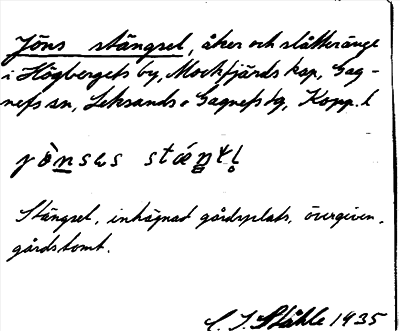 Jöns stängsel, åker och slåtteränge
i Högbergets by, Mockfjärds kap, Gag-
nefs sn, Leksands o Gagnefs tg, Kopp. l
Stängsel, inhägnad gårdsplats, övergiven
gårdstomt.
C. I. Ståhle 1935